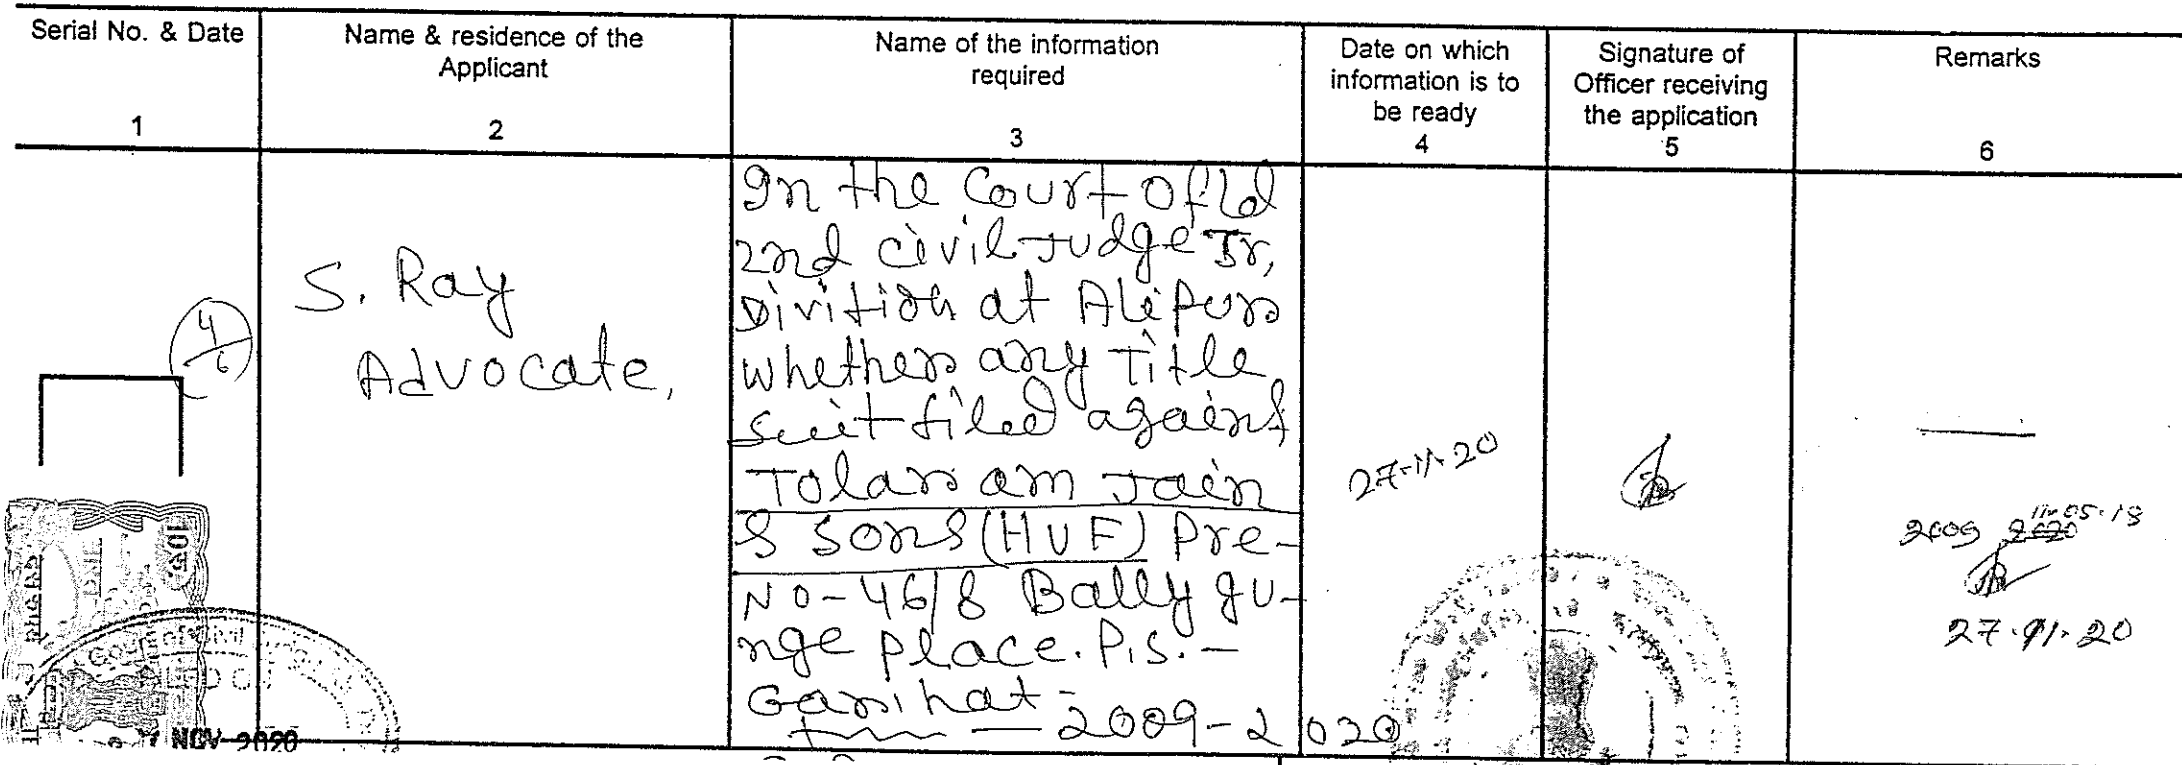 Serial No. & Date
1
Name & residence of the
Applicant
2
Name of the information
required
3
Date on which
information is to
be ready
4
Signature of
Officer receiving
the application
5
Remarks
6
4/6
S. Ray
Advocate,
In the Court of Ld
2nd Civil Judge Jr,
Divition at Alipur
whether any Title
suit filed against
Tolaram Jain
& Sons (HUF) Pre-
No-46/8 Ballygu-
nge Place. P.S.-
Garihat-
— 2009-2020
27-11-20
2009 2020 11-05-18
27.11.20
NOV 2020